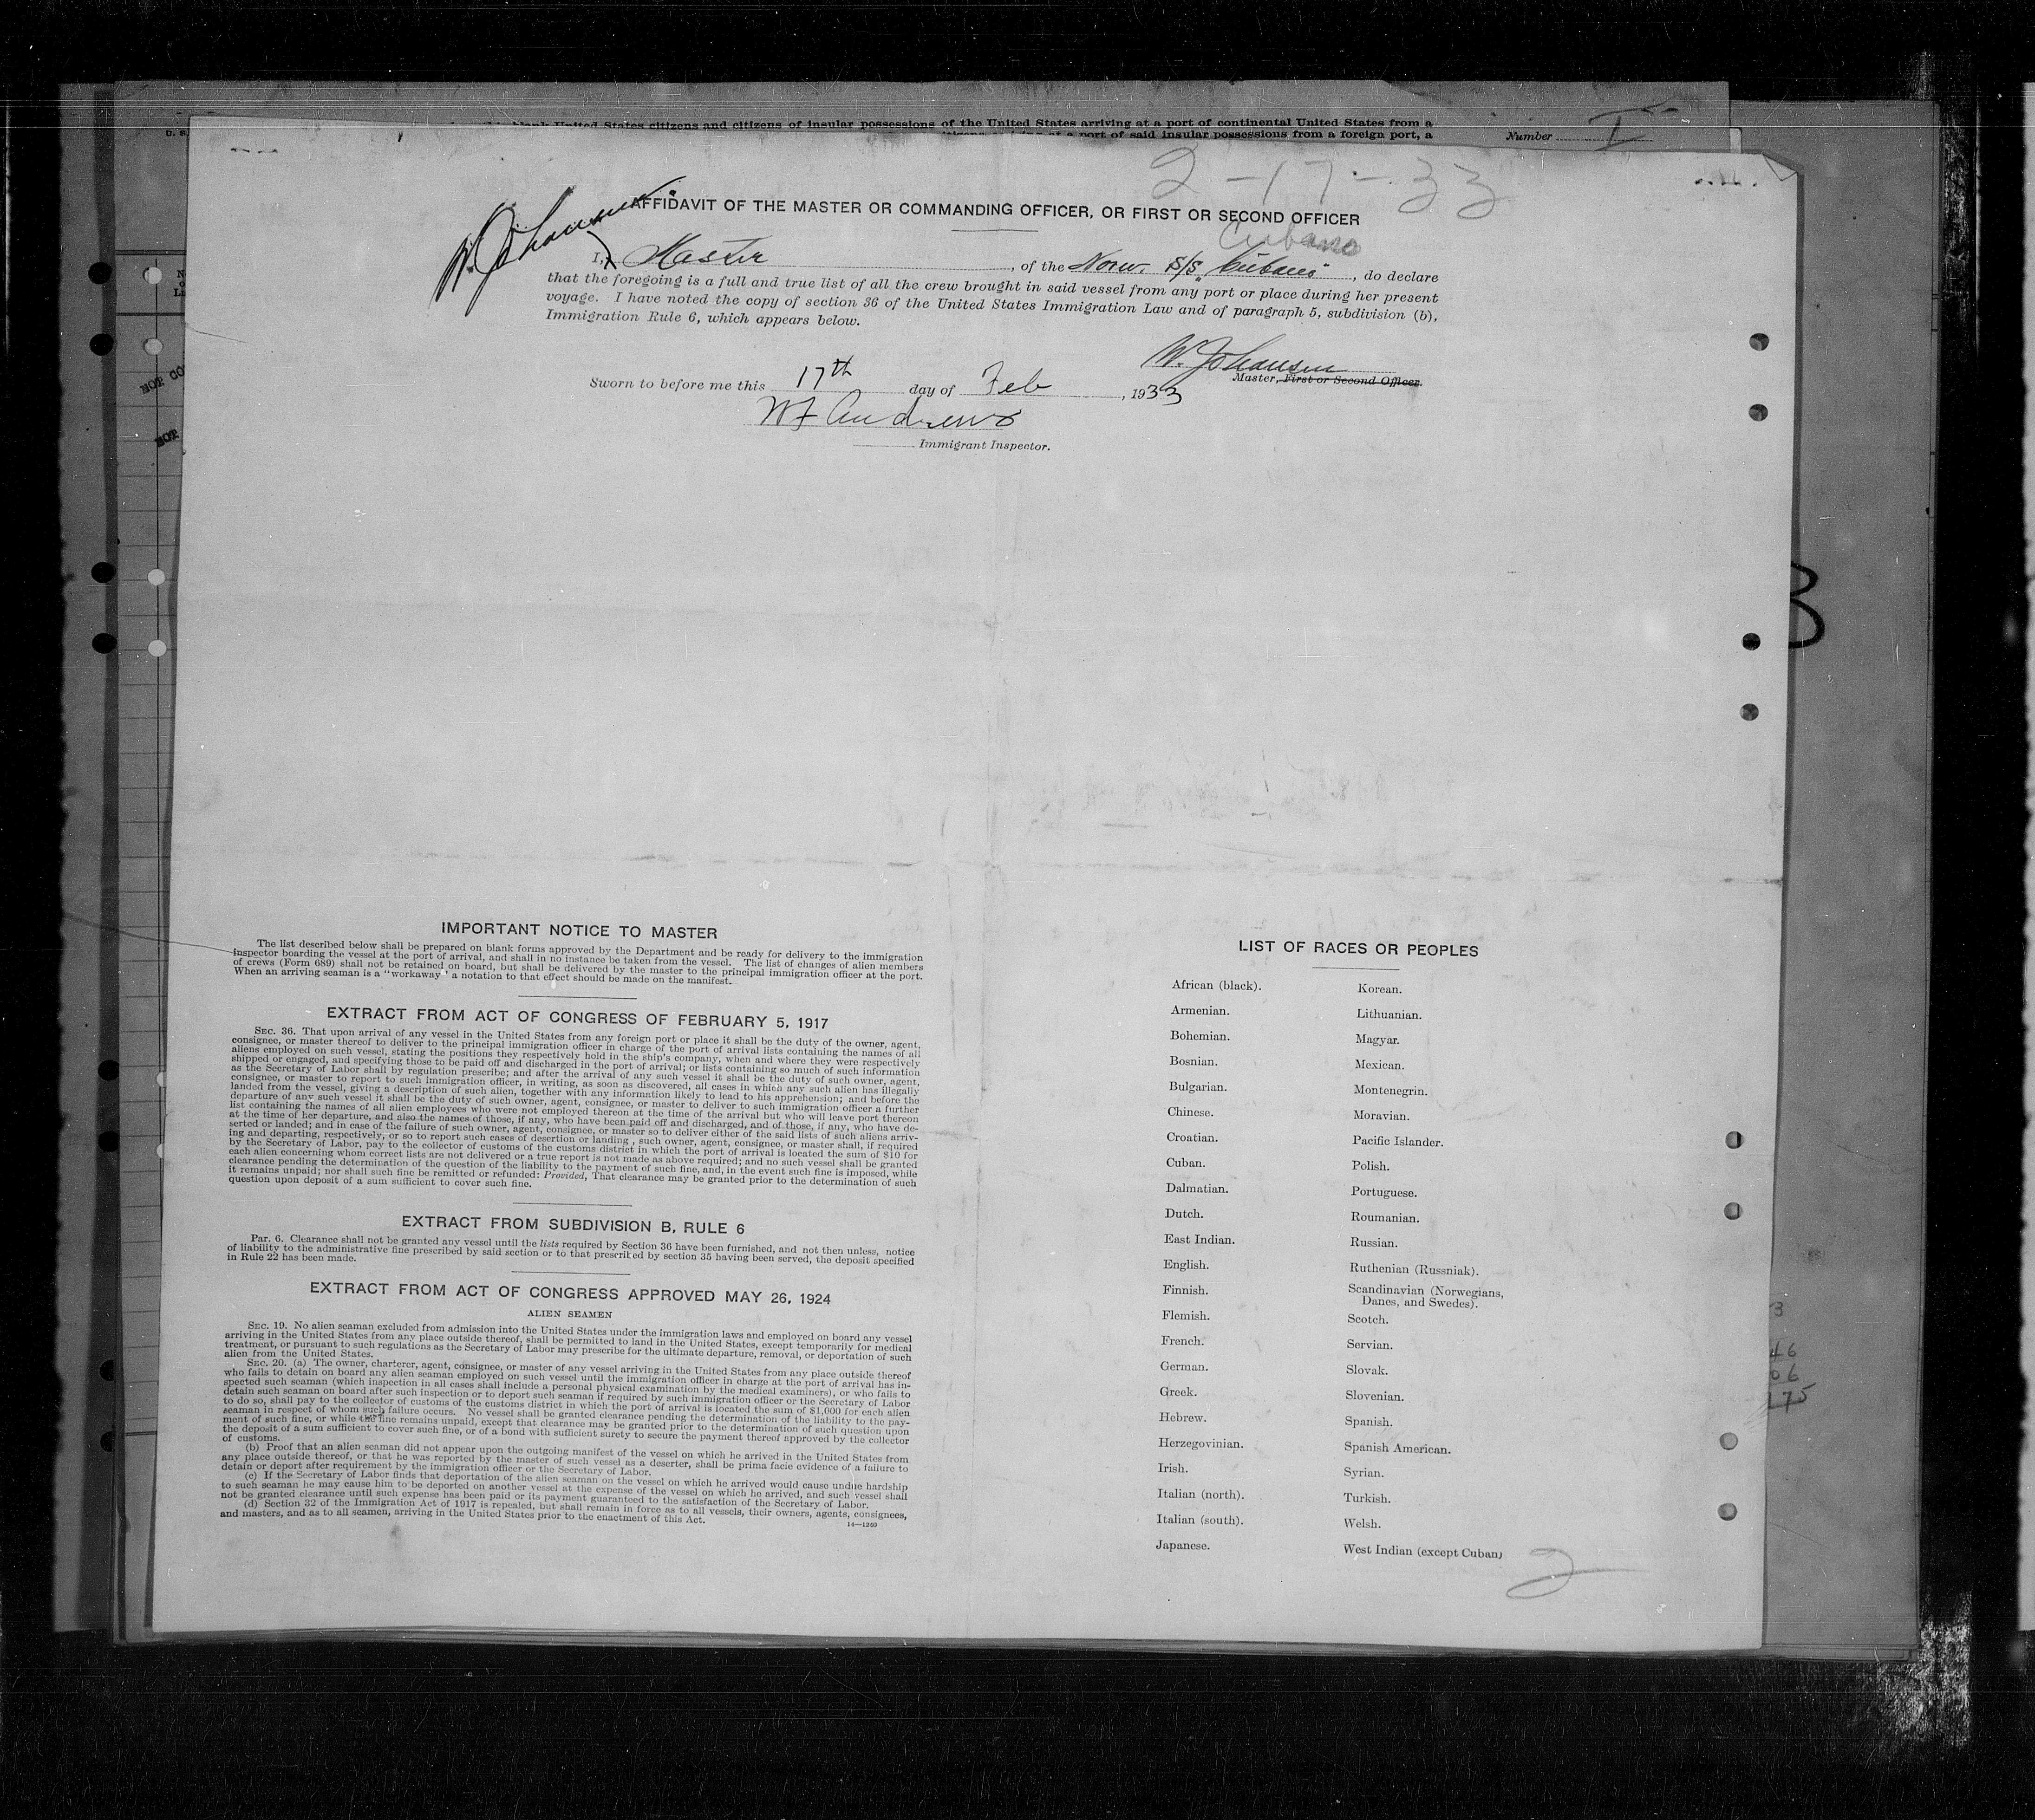 blank United States citizens and citizens of insular possessions of the United States arriving at a port of continental United States from a
at a port of said insular possessions from a foreign port, a
Number I
2-17-33
AFFIDAVIT OF THE MASTER OR COMMANDING OFFICER, OR FIRST OR SECOND OFFICER
Cubano
W. Johansen
I, Master, of the Norw. S/S "Cubano", do declare
that the foregoing is a full and true list of all the crew brought in said vessel from any port or place during her present
voyage. I have noted the copy of section 36 of the United States Immigration Law and of paragraph 5, subdivision (b),
Immigration Rule 6, which appears below.
W. Johansen
Master, First or Second Officer.
Sworn to before me this 17th day of Feb, 1933
W F Andrews
Immigrant Inspector.
IMPORTANT NOTICE TO MASTER
The list described below shall be prepared on blank forms approved by the Department and be ready for delivery to the immigration
inspector boarding the vessel at the port of arrival, and shall in no instance be taken from the vessel. The list of changes of alien members
of crews (Form 689) shall not be retained on board, but shall be delivered by the master to the principal immigration officer at the port.
When an arriving seaman is a "workaway" a notation to that effect should be made on the manifest.
EXTRACT FROM ACT OF CONGRESS OF FEBRUARY 5, 1917
SEC. 36. That upon arrival of any vessel in the United States from any foreign port or place it shall be the duty of the owner, agent,
consignee, or master thereof to deliver to the principal immigration officer in charge of the port of arrival lists containing the names of all
aliens employed on such vessel, stating the positions they respectively hold in the ship's company, when and where they were respectively
shipped or engaged, and specifying those to be paid off and discharged in the port of arrival; or lists containing so much of such information
as the Secretary of Labor shall by regulation prescribe; and after the arrival of any such vessel it shall be the duty of such owner, agent,
consignee, or master to report to such immigration officer, in writing, as soon as discovered, all cases in which any such alien has illegally
landed from the vessel, giving a description of such alien, together with any information likely to lead to his apprehension; and before the
departure of any such vessel it shall be the duty of such owner, agent, consignee, or master to deliver to such immigration officer a further
list containing the names of all alien employees who were not employed thereon at the time of the arrival but who will leave port thereon
at the time of her departure, and also the names of those, if any, who have been paid off and discharged, and of those, if any, who have de-
serted or landed; and in case of the failure of such owner, agent, consignee, or master so to deliver either of the said lists of such aliens arriv-
ing and departing, respectively, or so to report such cases of desertion or landing , such owner, agent, consignee, or master shall, if required
by the Secretary of Labor, pay to the collector of customs of the customs district in which the port of arrival is located the sum of $10 for
each alien concerning whom correct lists are not delivered or a true report is not made as above required; and no such vessel shall be granted
clearance pending the determination of the question of the liability to the payment of such fine, and, in the event such fine is imposed, while
it remains unpaid; nor shall such fine be remitted or refunded: Provided, That clearance may be granted prior to the determination of such
question upon deposit of a sum sufficient to cover such fine.
EXTRACT FROM SUBDIVISION B, RULE 6
Par. 6. Clearance shall not be granted any vessel until the lists required by Section 36 have been furnished, and not then unless, notice
of liability to the administrative fine prescribed by said section or to that prescribed by section 35 having been served, the deposit specified
in Rule 22 has been made.
EXTRACT FROM ACT OF CONGRESS APPROVED MAY 26, 1924
ALIEN SEAMEN
SEC. 19. No alien seaman excluded from admission into the United States under the immigration laws and employed on board any vessel
arriving in the United States from any place outside thereof, shall be permitted to land in the United States, except temporarily for medical
treatment, or pursuant to such regulations as the Secretary of Labor may prescribe for the ultimate departure, removal, or deportation of such
alien from the United States.
SEC. 20. (a) The owner, charterer, agent, consignee, or master of any vessel arriving in the United States from any place outside thereof
who fails to detain on board any alien seaman employed on such vessel until the immigration officer in charge at the port of arrival has in-
spected such seaman (which inspection in all cases shall include a personal physical examination by the medical examiners), or who fails to
detain such seaman on board after such inspection or to deport such seaman if required by such immigration officer or the Secretary of Labor
to do so, shall pay to the collector of customs of the customs district in which the port of arrival is located the sum of $1,000 for each alien
seaman in respect of whom such failure occurs. No vessel shall be granted clearance pending the determination of the liability to the pay-
ment of such fine, or while the fine remains unpaid, except that clearance may be granted prior to the determination of such question upon
the deposit of a sum sufficient to cover such fine, or of a bond with sufficient surety to secure the payment thereof approved by the collector
of customs.
(b) Proof that an alien seaman did not appear upon the outgoing manifest of the vessel on which he arrived in the United States from
any place outside thereof, or that he was reported by the master of such vessel as a deserter, shall be prima facie evidence of a failure to
detain or deport after requirement by the immigration officer or the Secretary of Labor.
(c) If the Secretary of Labor finds that deportation of the alien seaman on the vessel on which he arrived would cause undue hardship
to such seaman he may cause him to be deported on another vessel at the expense of the vessel on which he arrived, and such vessel shall
not be granted clearance until such expense has been paid or its payment guaranteed to the satisfaction of the Secretary of Labor.
(d) Section 32 of the Immigration Act of 1917 is repealed, but shall remain in force as to all vessels, their owners, agents, consignees,
and masters, and as to all seamen, arriving in the United States prior to the enactment of this Act.
14—1240
LIST OF RACES OR PEOPLES
African (black).
Armenian.
Bohemian.
Bosnian.
Bulgarian.
Chinese.
Croatian.
Cuban.
Dalmatian.
Dutch.
East Indian.
English.
Finnish.
Flemish.
French.
German.
Greek.
Hebrew.
Herzegovinian.
Irish.
Italian (north).
Italian (south).
Japanese.
Korean.
Lithuanian.
Magyar.
Mexican.
Montenegrin.
Moravian.
Pacific Islander.
Polish.
Portuguese.
Roumanian.
Russian.
Ruthenian (Russniak).
Scandinavian (Norwegians,
Danes, and Swedes).
Scotch.
Servian.
Slovak.
Slovenian.
Spanish.
Spanish American.
Syrian.
Turkish.
Welsh.
West Indian (except Cuban)
2